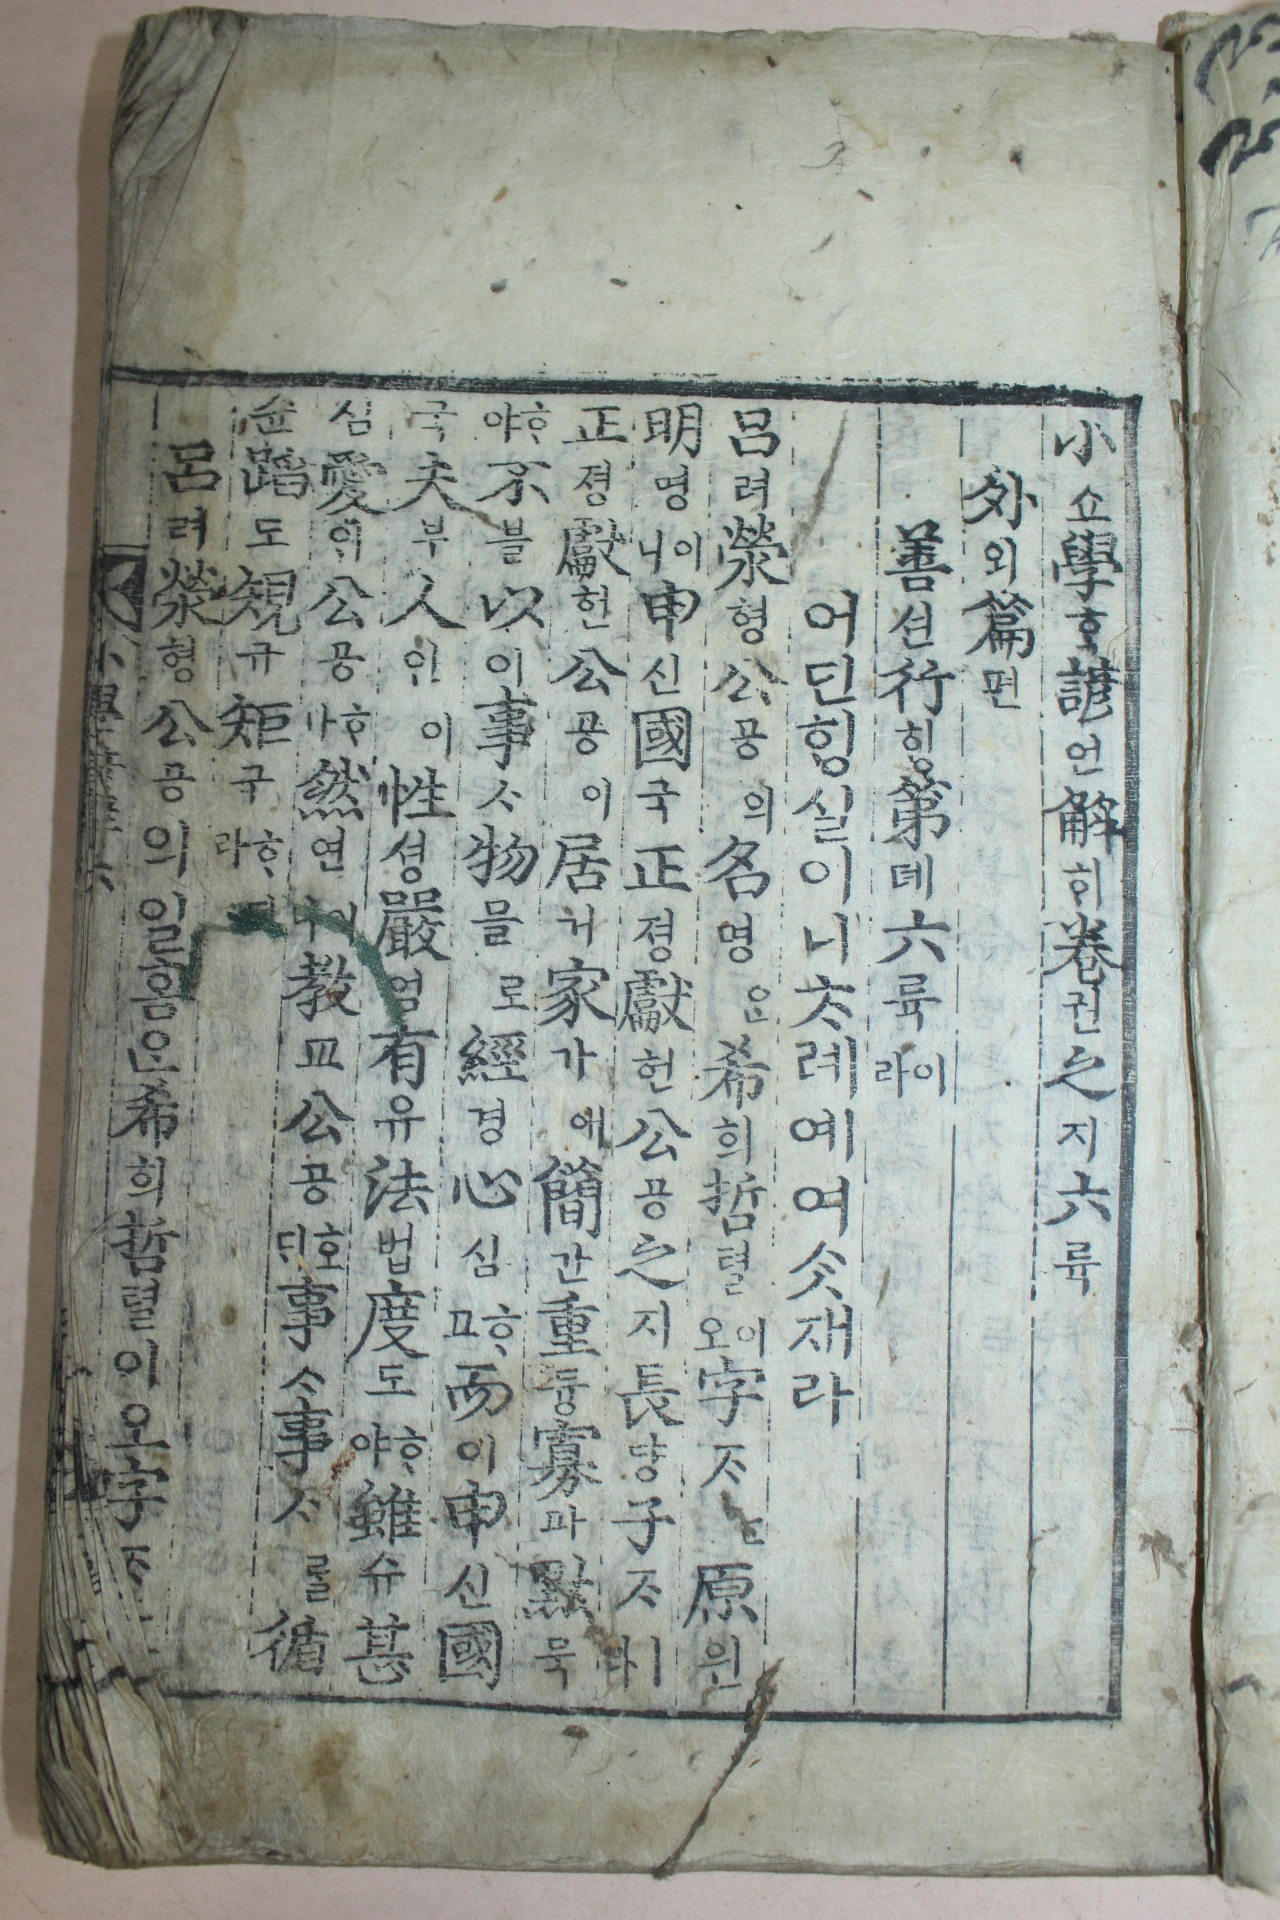 小쇼學ᄒᆞᆨ諺언解ᄒᆡ卷권之지六륙
外외篇편
善션行ᄒᆡᆼ第뎨六륙이라
어딘ᄒᆡᆼ실이니ᄎᆞ례예여ᄉᆞᆺ재라
呂려滎형公공의名명은希희哲텰이오字ᄌᆞᄂᆞᆫ原원
明명이니申신國국正졍獻헌公공之지長댱子ᄌᆞㅣ라
正졍獻헌公공이居거家가애簡간重듕寡과黙묵
ᄒᆞ야不블以이事ᄉᆞ物믈로經경心심ᄒᆞ고而이申신國
국夫부人인이性셩嚴엄有유法법度도ᄒᆞ야雖슈甚
심愛ᄋᆡ公공ᄒᆞ나然연이나敎교公공호ᄃᆡ事ᄉᆞ事ᄉᆞ를循
슌蹈도規규矩구ᄒᆞ라
呂려滎형公공의일홈은希희哲텰이오字ᄌᆞ